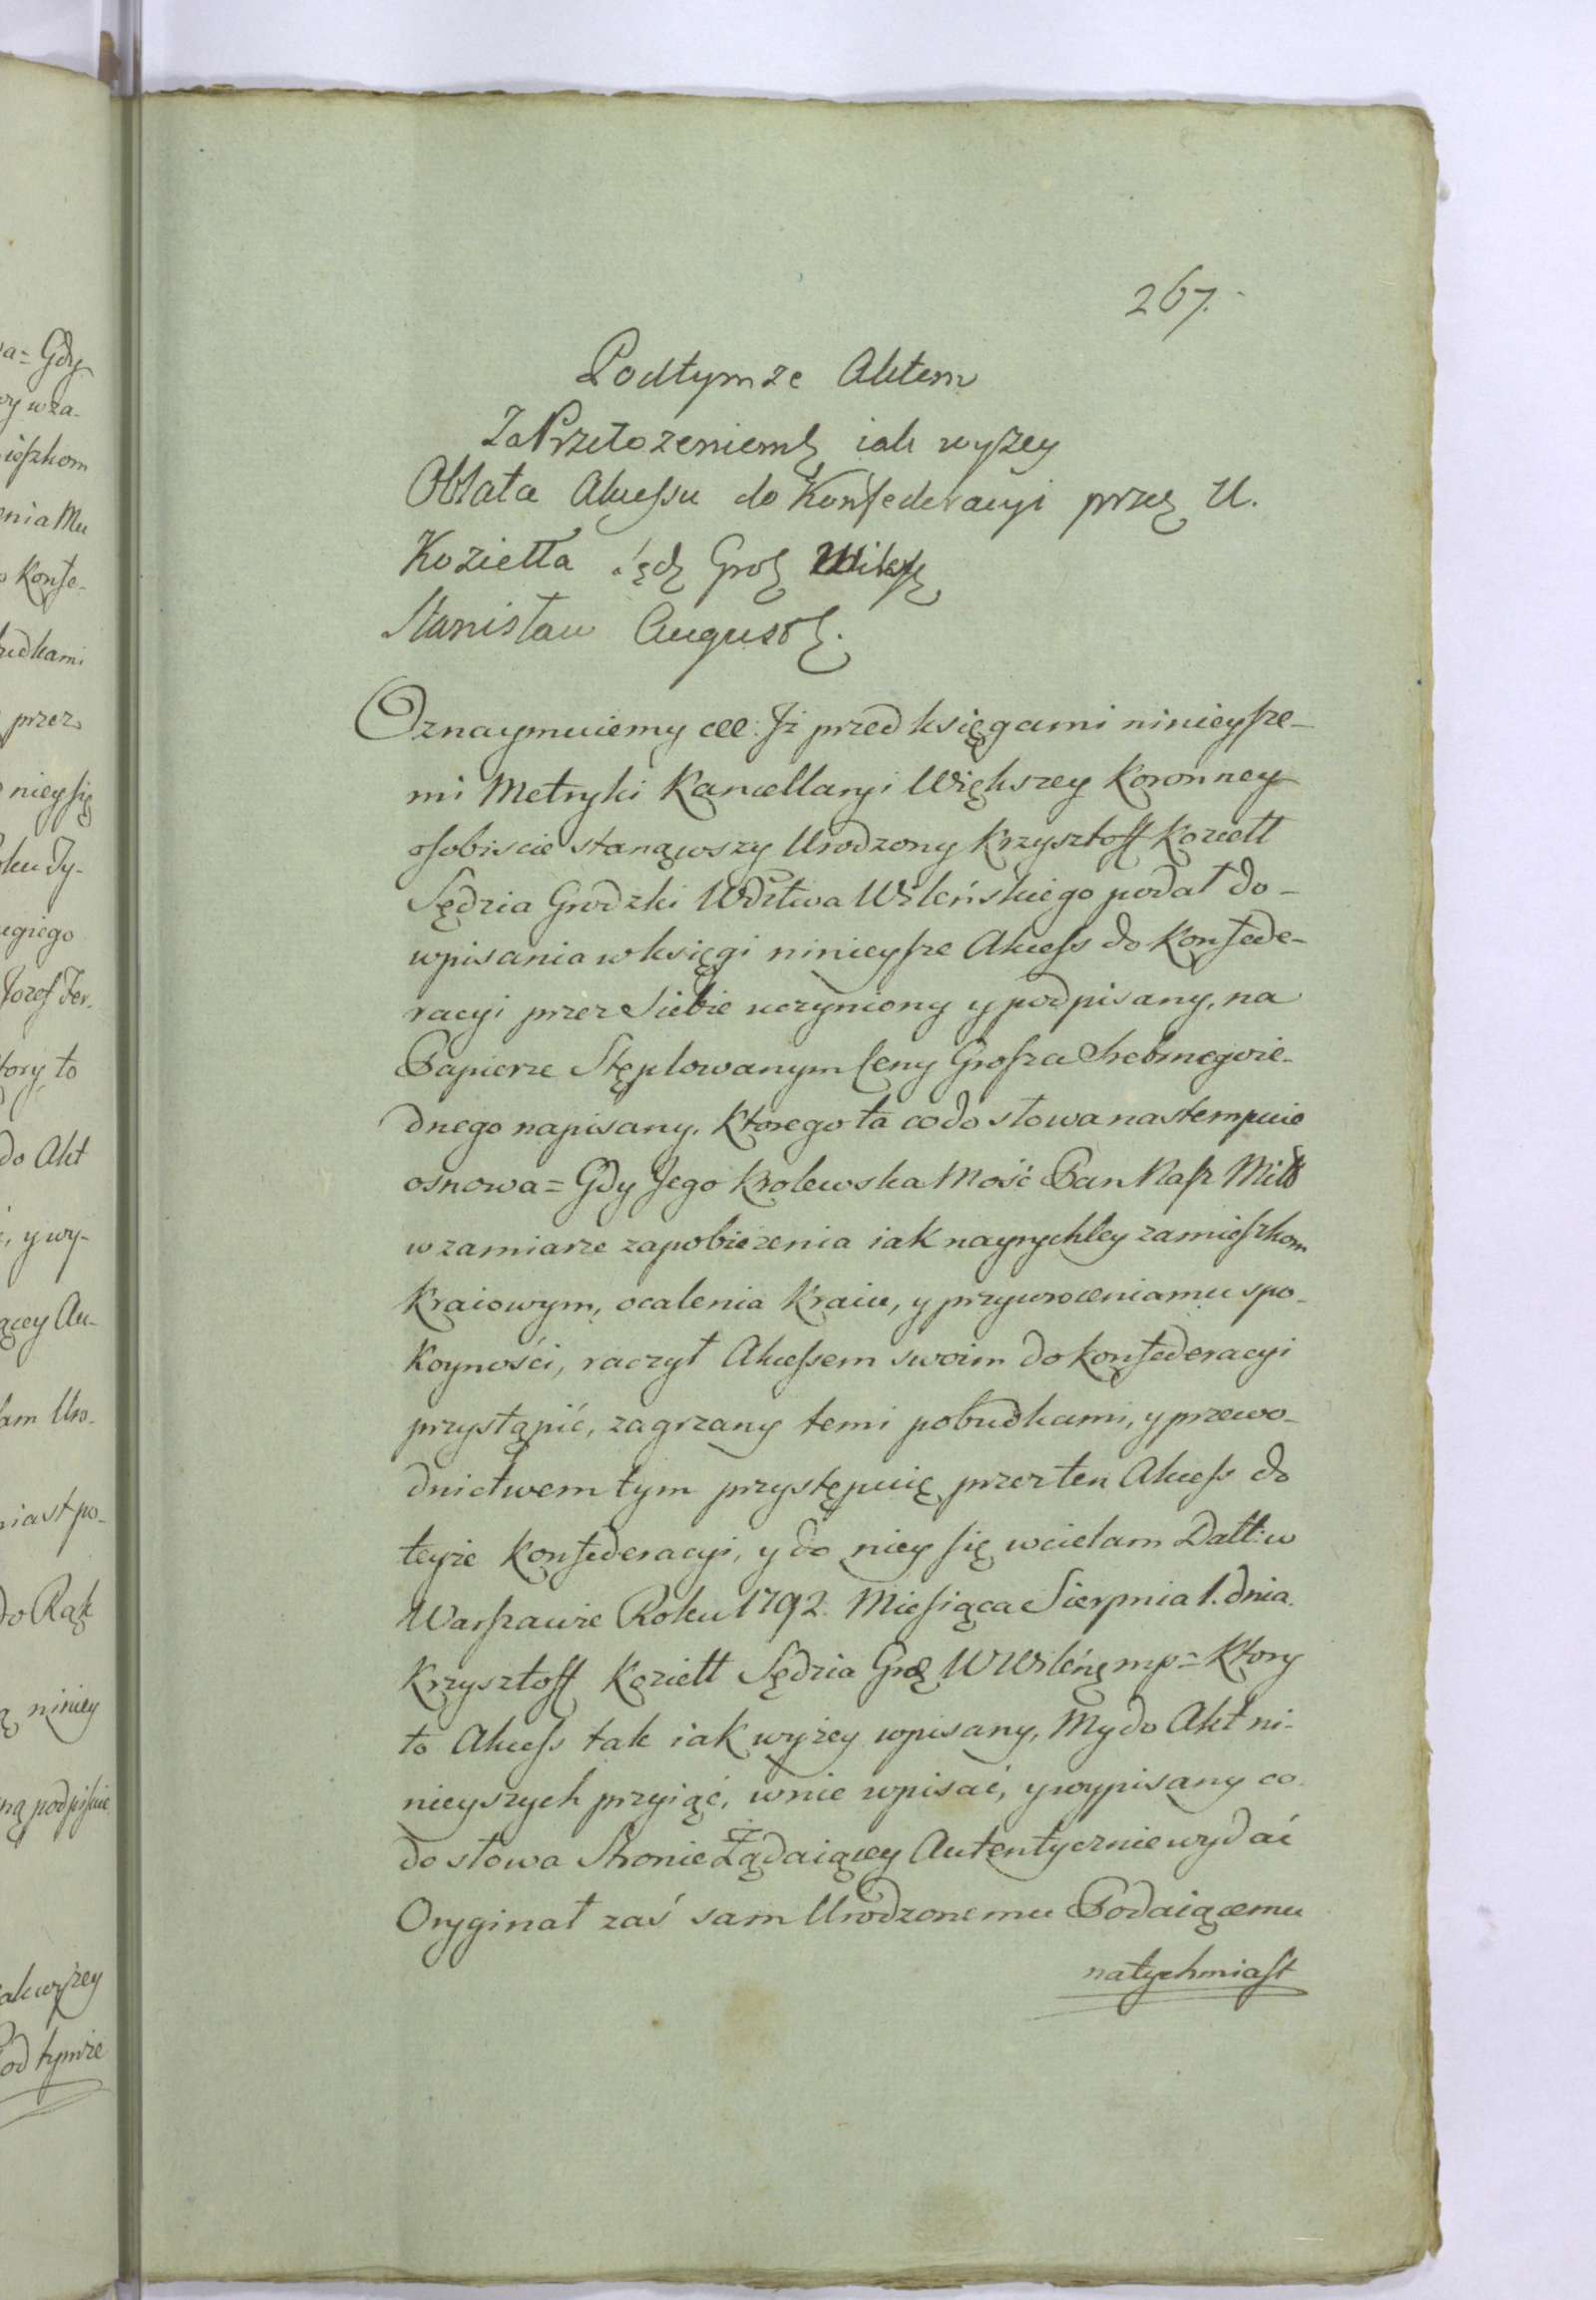 267.
Podtymze Aktem
Za Przełożeniem iak wyszey
Oblata Akcessu do Konfederacyi przez U.
Koziełła Sędz Grodz Wileń
Stanisław August.
Oznaymuiemy ett: Jż przed księgami ninieysze-
mi Metryki Kancellaryi Większey Koronney
osobiscie stanąwszy Urodzony Krzysztoff Koziełł
Sędzia Grodzki Wdztwa Wileńskiego podał do-
wpisania w księgi ninieysze Akcess do Konfede-
racyi przez Siebie uczyniony y podpisany, na
Papierze Stęplowanym Ceny Grosza Srebrnego ie-
dnego napisany, Ktorego ta co do słowa nastempuie
osnowa = Gdy Jego Krolewska Mość Pan Nasz Miłł
w zamiarze zapobieżenia iak nayrychley zamieszkom
Kraiowym, ocalenia Kraiu, y przywrocenia mu spo-
koyności, raczył Akcessem swoim do Konfederacyi
przystąpić, zagrzany temi pobudkami, y przewo-
dnictwem tym przystępuię przez ten Akcess do
teyże Konfederacyi, y do niey się wcielam Datt: w
Warszawie Roku 1792. Miesiąca Sierpnia 1. dnia.
Krzysztoff Koziełł Sędzia Grodz W Wileń mp = Ktory
to Akcess tak iak wyżey wpisany, My do Akt ni-
nieyszych przyiąć, w nie wpisać, y wypisany co
do słowa Stronie Żądaiącey Autentycznie wydać
Oryginał zaś sam Urodzonemu Podaiącemu
natychmiast
a = Gdy
wy w za-
ieszkom
enia Mu
o Konfe-
udkami
przez
niey się
oku Ty-
egiego
Jozef Jer.
tory to
do Akt
, y wy-
ącey Au-
am Uro-
iast po-
do Rąk
niniey
ną podpisuie
ak wyżey
Pod tymże